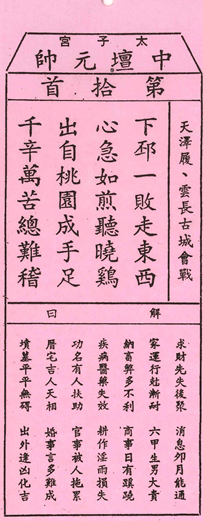 太子宮
中壇元帥
第拾首
天澤履、雲長古城會戰
下邳一敗走東西
心急如煎聽曉鷄
出自桃園成手足
千辛萬苦總難稽
解曰
求財先失後聚 消息卯月能通
家運行尅漸耐 六甲生男大貴
納畜弊多不利 商事日有蹊蹺
疾病醫藥失效 耕作淫雨損失
功名有人扶助 官事被人拖累
曆宅吉人天相 婚事言多難成
墳墓平平無碍 出外逢凶化吉